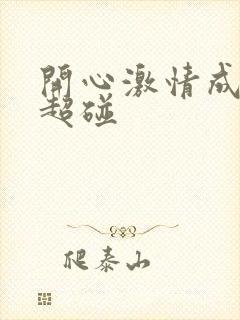 開心激情成
超碰
爬泰山